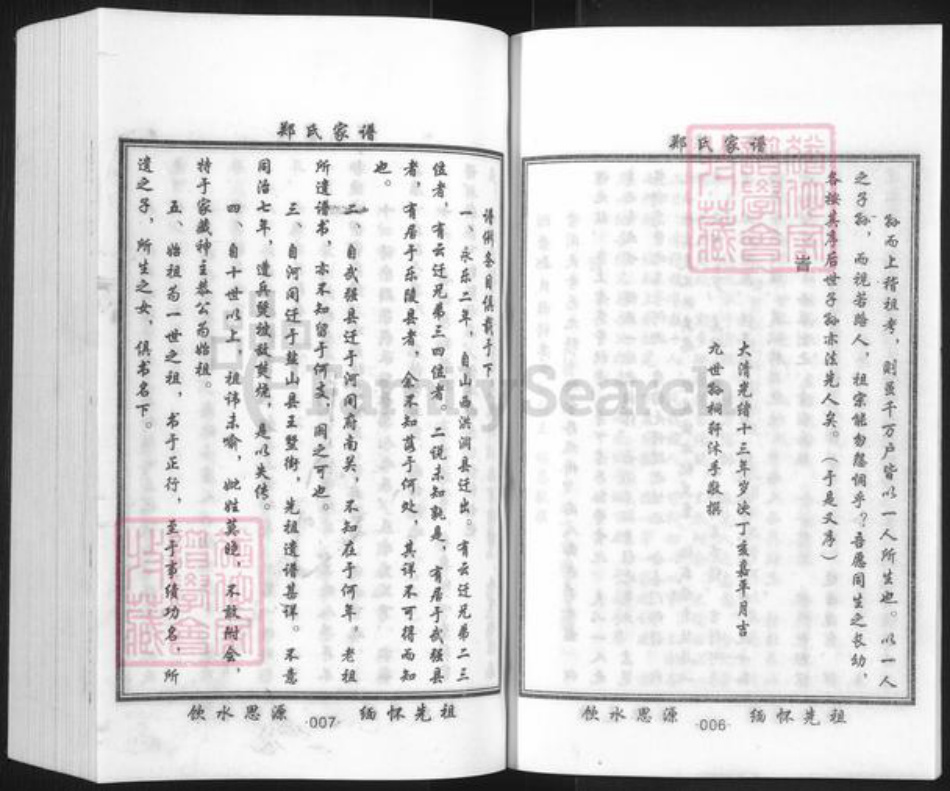 郑氏家谱
孙而上稽祖考，则虽千万户皆以一人所生也。以一人
之子孙，而视若路人，祖宗能勿怨恫乎？吾愿同生之长幼，
各按其序后世子孙亦法先人矣。（于是又序）
皆
大清光绪十三年岁次丁亥嘉平月吉
九世孙祠 沐手敬撰
饮水思源 ·006· 缅怀先祖
郑氏家谱
谱例条目俱载于下
一、永乐二年，自山西洪洞县迁出。有云迁兄弟二三
位者，有云迁兄弟三四位者。二说未知孰是，有居于武强县
者，有居于乐陵县者，余不知落于何处，其详不可得而知
也。
二、自武强县迁于河间府南关，不知在于何年，老祖
所遗谱书，亦不知留于何支，阙之可也。
三、自河间迁于盐山县王暨街，先祖遗谱甚详。不意
同治七年，遭兵燹被放焚烧，是以失传。
四、自十世以上，祖讳未喻，妣姓莫晓，不敢附会，
特于家藏神主 公为始祖。
五、始祖为一世之祖，书于正行，至于事绩功名，所
遗之子，所生之女，俱书名下。
饮水思源 ·007· 缅怀先祖
FamilySearch